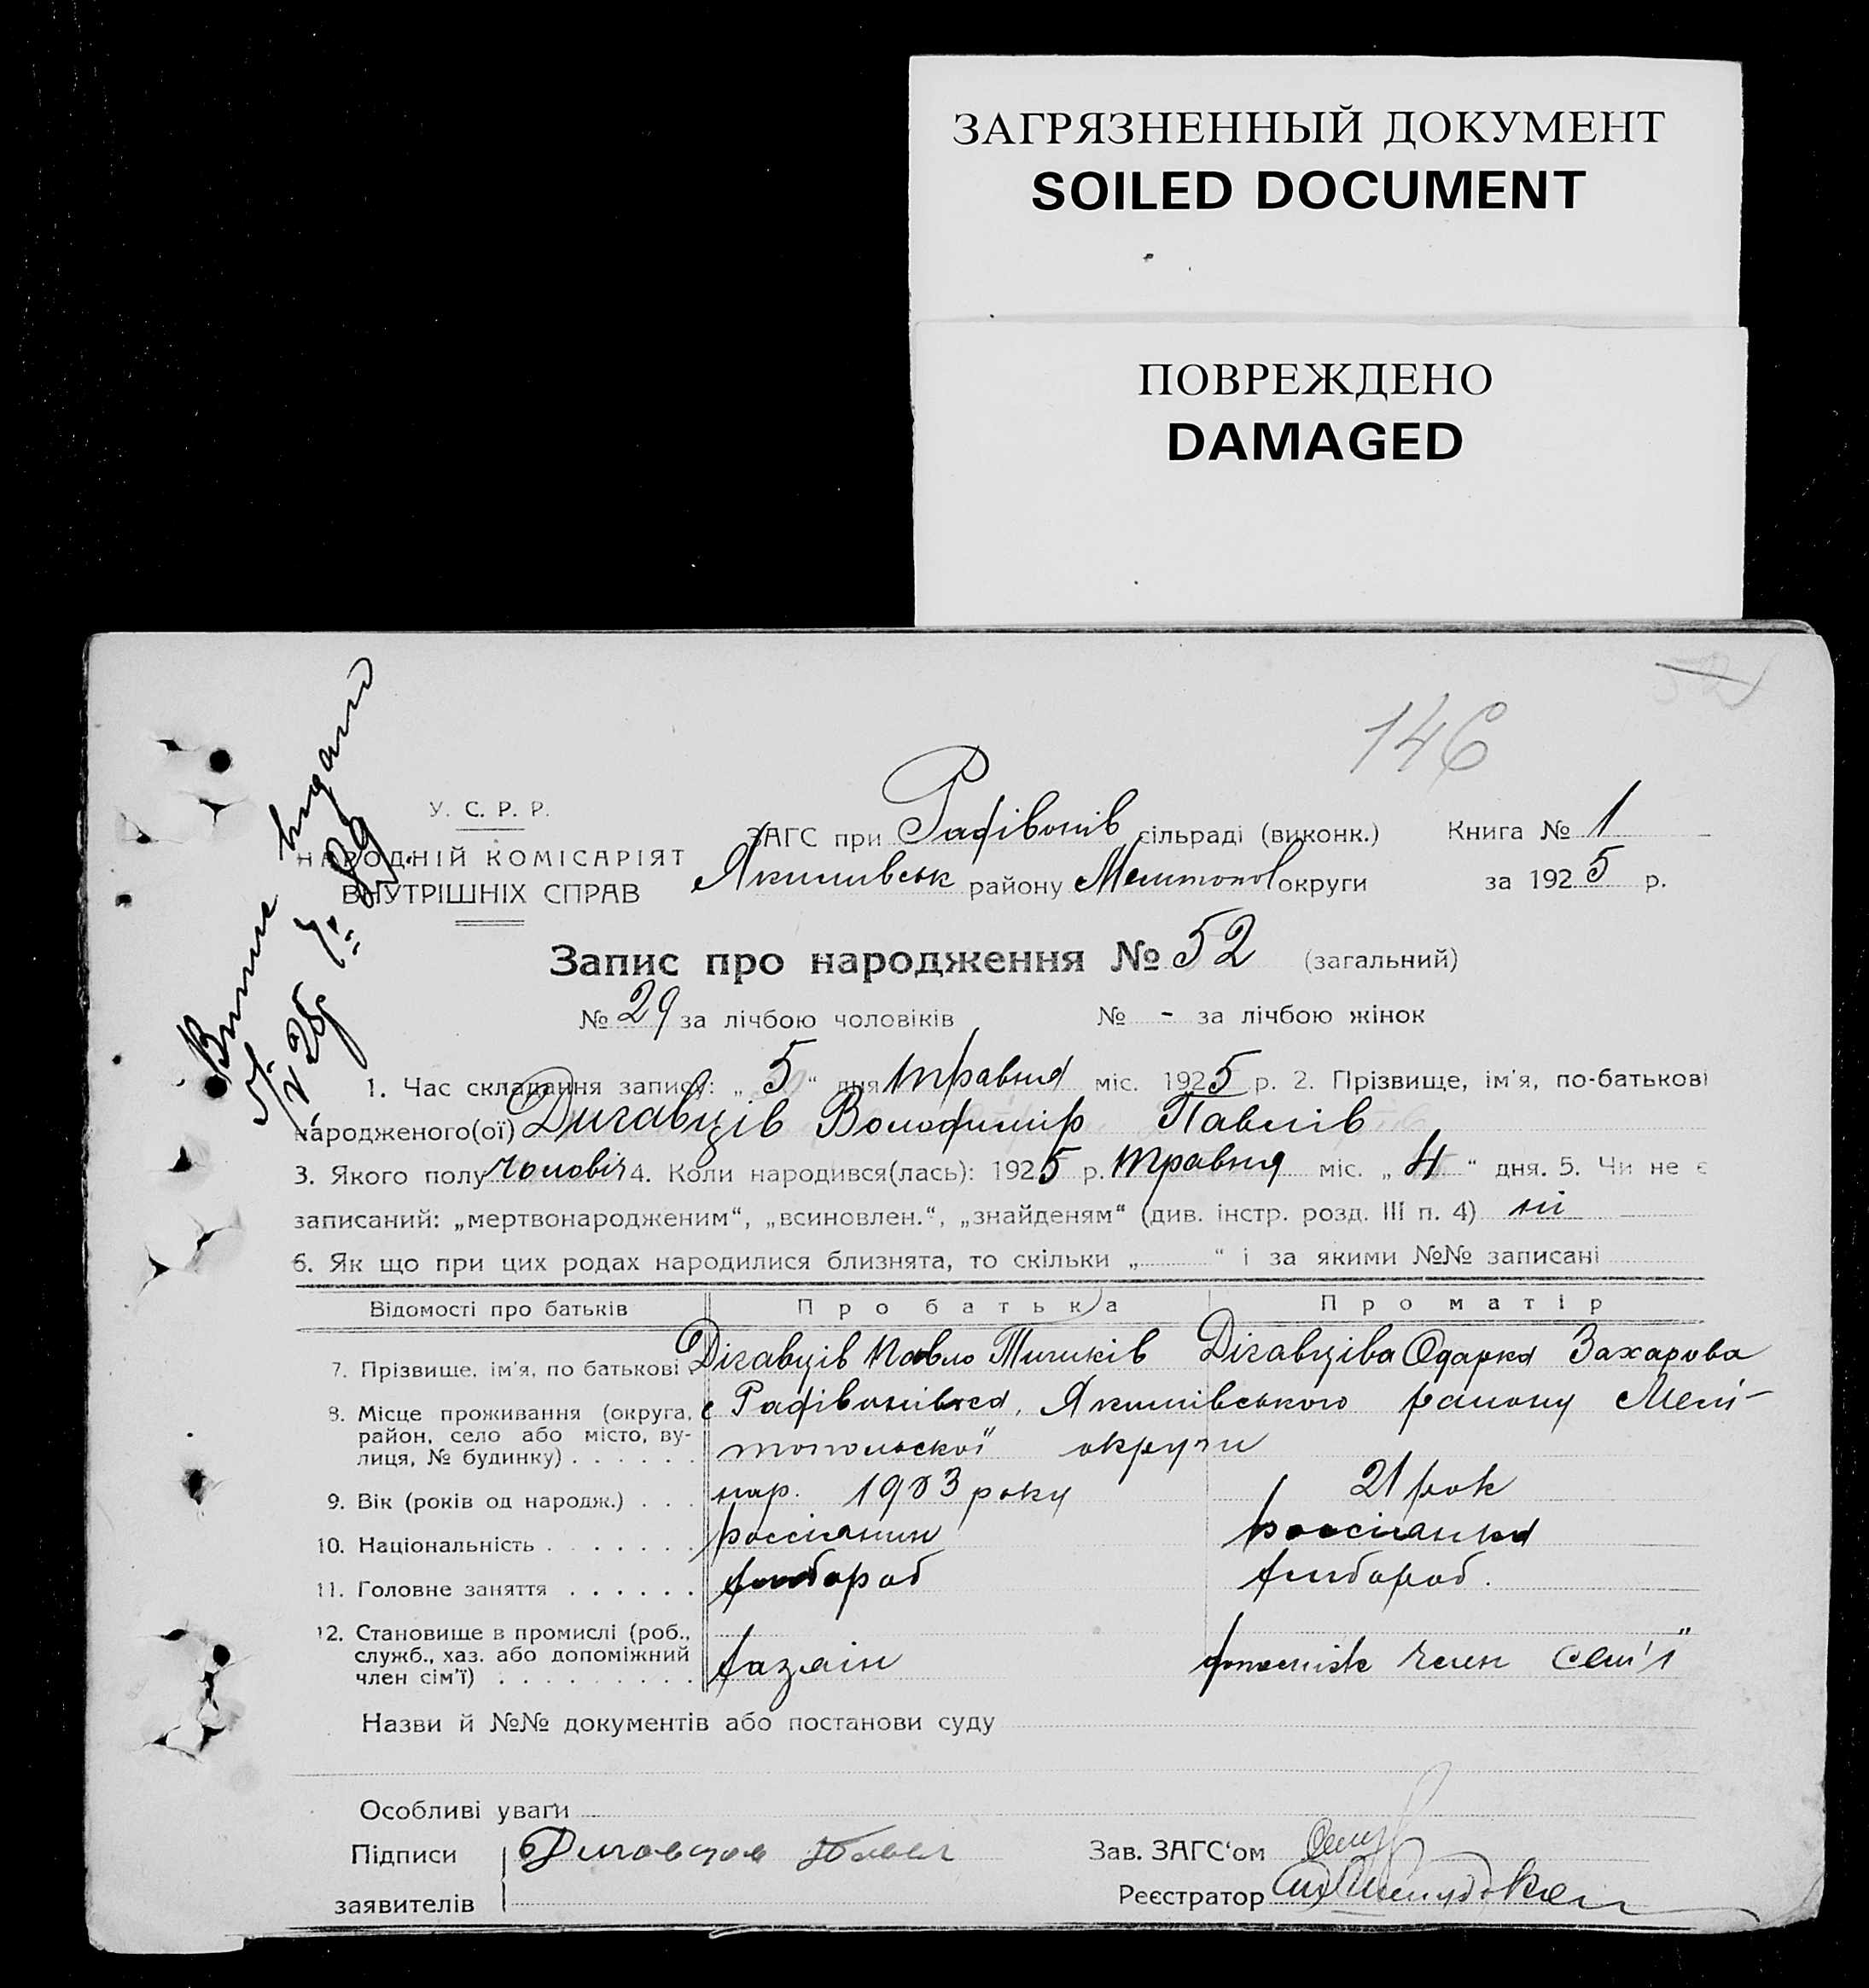 ЗАГРЯЗНЕННЫЙ ДОКУМЕНТ
SOILED DOCUMENT
ПОВРЕЖДЕНО
DAMAGED
52
146
У. С. Р. Р.
НАРОДНІЙ КОМІСАРІЯТ
ВНУТРІШНІХ СПРАВ
ЗАГС при Радівонів сільраді (виконк.) Книга № 1
Якимівськ району Мелитопол округи за 1925 р.
Запис про народження № 52 (загальний)
№ 29 за лічбою чоловіків № - за лічбою жінок
1. Час складання запису: „ 5 “ дня травня міс. 1925 р. 2. Прізвище, ім'я, по-батькові
народженого(ої) Дигавців Володимір Павлів
3. Якого полу чоловіч 4. Коли народився(лась): 1925 р. травня міс. „ 4 “ дня. 5. Чи не є
записаний: „мертвонародженим“, „всиновлен.“, „знайденям“ (див. інстр. розд. III п. 4) ні
6. Як що при цих родах народилися близнята, то скільки „ “ і за якими №№ записані
Відомості про батьків Про батька Про матір
7. Прізвище, ім'я, по батькові Дігавців Павло Тишків Дігавціва Одарка Захарова
8. Місце проживання (округа, с Радівонівка, Якимівського району Мелі-
район, село або місто, ву-
лиця, № будинку) . . . . . . топольської округи
9. Вік (років од народж.) . . . нар. 1903 року 21 рок
10. Національність . . . . . . . россіянин россіянка
11. Головне заняття . . . . . . хлібороб хлібороб.
12. Становище в промислі (роб.,
служб., хаз. або допоміжний
член сім'ї) . . . . . . . . . хазяін член сем'ї
Назви й №№ документів або постанови суду
Особливі уваги
Підписи Зав. ЗАГС‘ом
заявителів Реєстратор